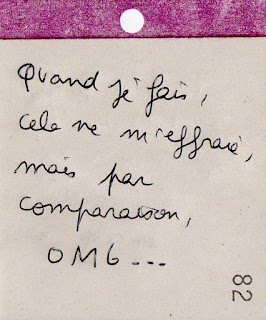 Quand j'y fais,
cela ne m'effraie,
mais par
comparaison,
OMG...
82